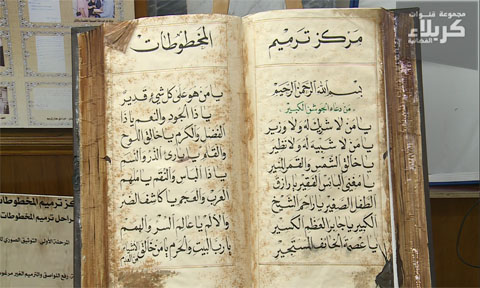 مجموعة قنوات
كربلاء
الفضائية
مركز ترميم
بسم الله الرحمن الرحيم
من دعاء الجوشن الكبير
يا من لا شريك له ولا وزير
يا من لا شبيه له ولا نظير
يا خالق الشمس والقمر المنير
يا مغني البائس الفقير يا رازق
الطفل الصغير يا راحم الشيخ
الكبير يا جابر العظم الكسير
يا عصمة الخائف المستجير
المخطوطات
يا من هو على كل شيء قدير
يا ذا الجود والنعم يا ذا
الفضل والكرم يا خالق اللوح
والقلم يا بارئ الذر والنسم
يا ذا البأس والنقم يا ملهم
العرب والعجم يا كاشف الضر
والالم يا عالم السر والهمم
يا رب البيت والحرم يا من خلق الاشياء
من العدم
كز ترميم المخطوطات
مراحل ترميم المخطوطات
المرحلة الأولى: التوثيق الصوري
رفع اللواصق والترميم الغير